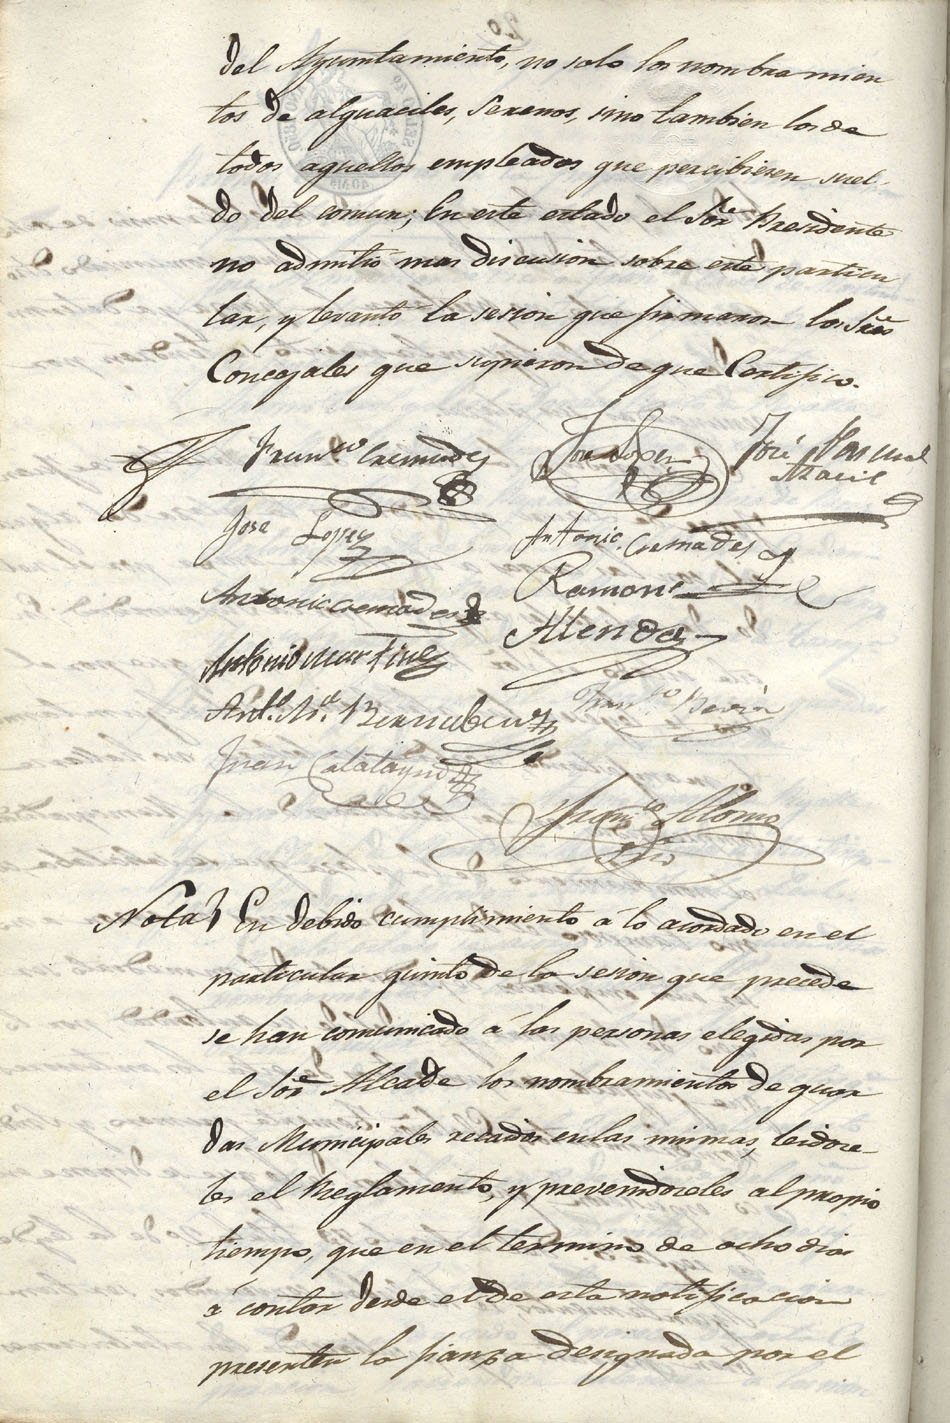 del Ayuntamiento, no solo los nombramien
tos de alguaciles, Serenos, sino tambien los de
todos aquellos empleados que percibieren suel-
do del comun; En este estado el Sor. Presidente
no admitió mas discusion sobre este particu
lar, y levantó la sesion que firmaron los Sres.
Concejales que supieron de que Certifico.
Franco. Cremades
José Lopez
José Pascual
José Lopez
Antonio Cremades
Antonio Cremades
Ramon
Allende
Antonio Martinez
Anto. Ma. Bernabeu
Franco.
Juan Calatayud
Franco. Alonso
Nota
En debido cumplimiento á lo acordado en el
particular quinto de la sesion que precede
se han comunicado á las personas elegidas por
el Sor. Alcalde los nombramientos de guar
das Municipales recaidos en las mismas, leidose-
les el Reglamento, y prevenidoseles al propio
tiempo, que en el termino de ocho dias
á contar desde el de esta notificacion
presenten la fianza designada por el